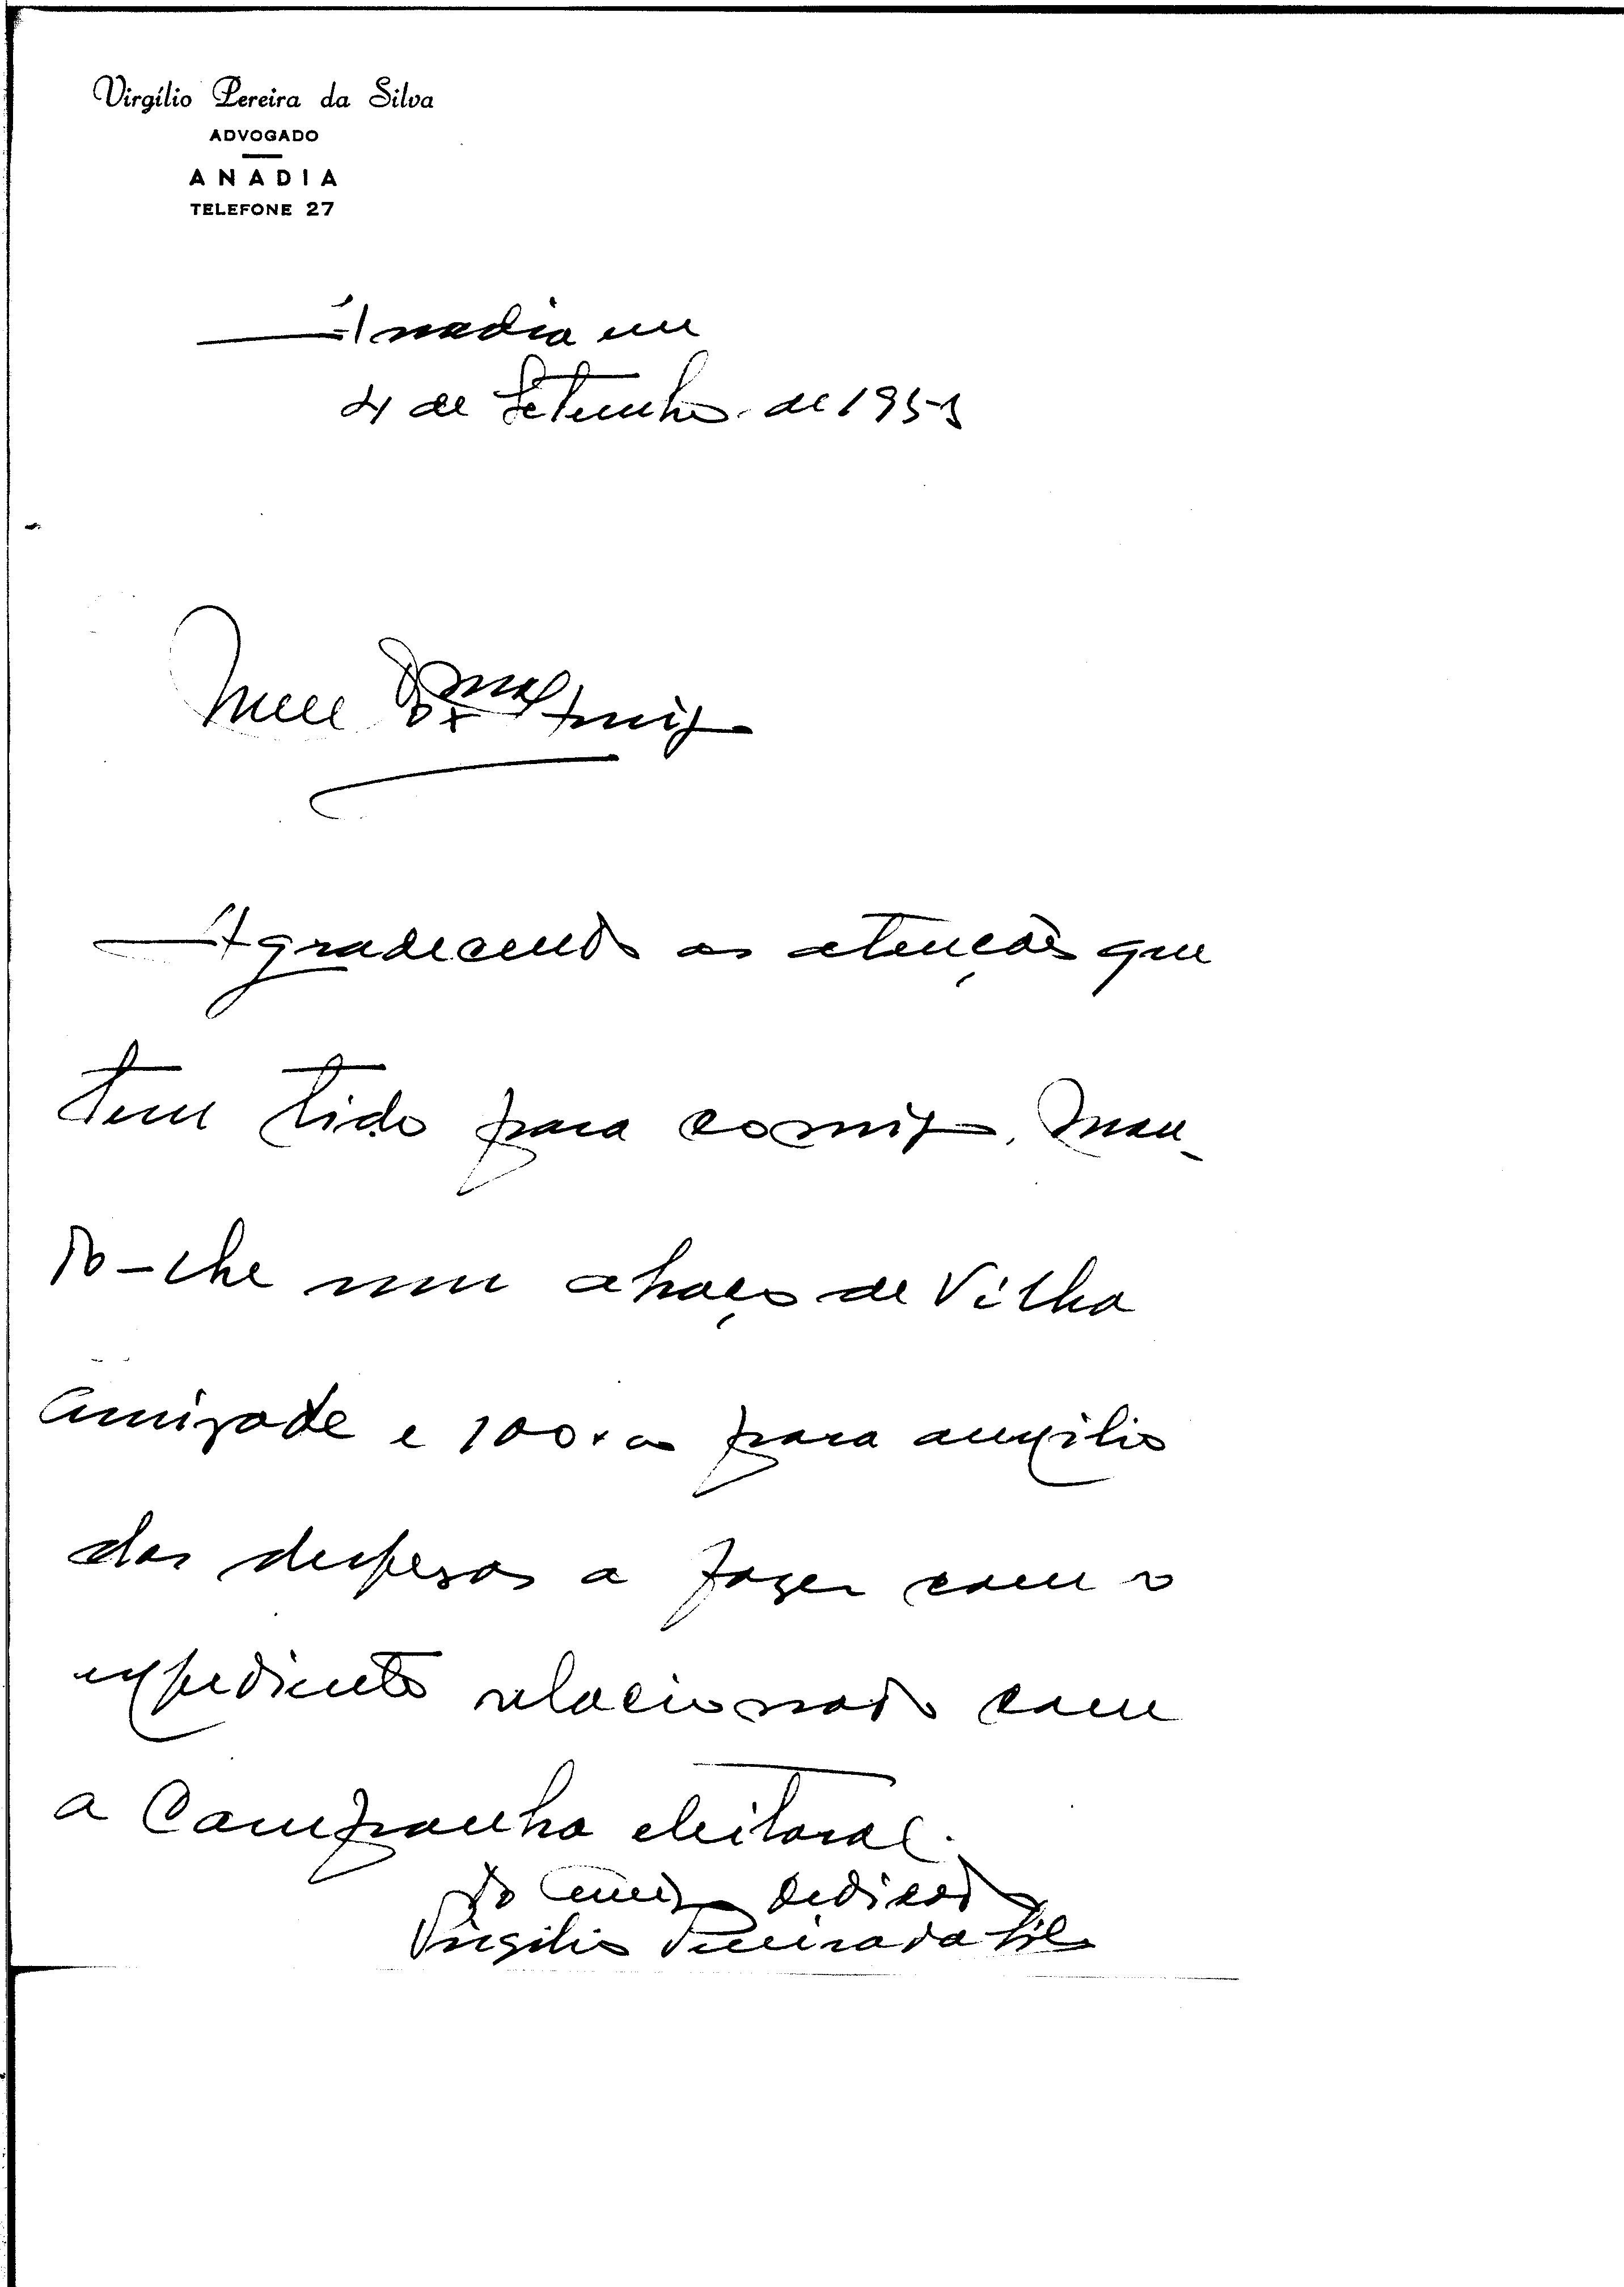 Virgílio Pereira da Silva
ADVOGADO
ANADIA
TELEFONE 27
Anadia em
4 de Setembro de 1953
Meu Amigo
Agradecendo as atenções que
tem tido para comigo, man-
do-lhe um abraço de velha
amizade e 100$00 para auxilio
das despesas a fazer com o
expediente relacionado com
a Campanha eleitoral.
do Amigo dedicado
Virgilio Pereira da Silva